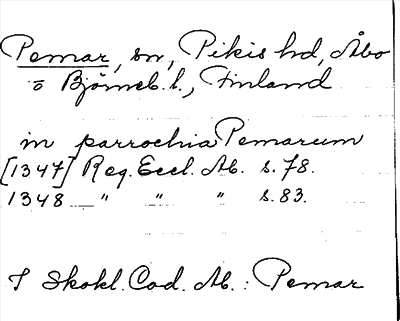 Pemar, sn, Pikis hd, Åbo
o Björneb. l., Finland
in parrochia Pemarum
[1347] Reg. Eccl. Ab. s. 78.
1348 — " " " s. 83.
I Skokl. Cod. Ab. : Pemar